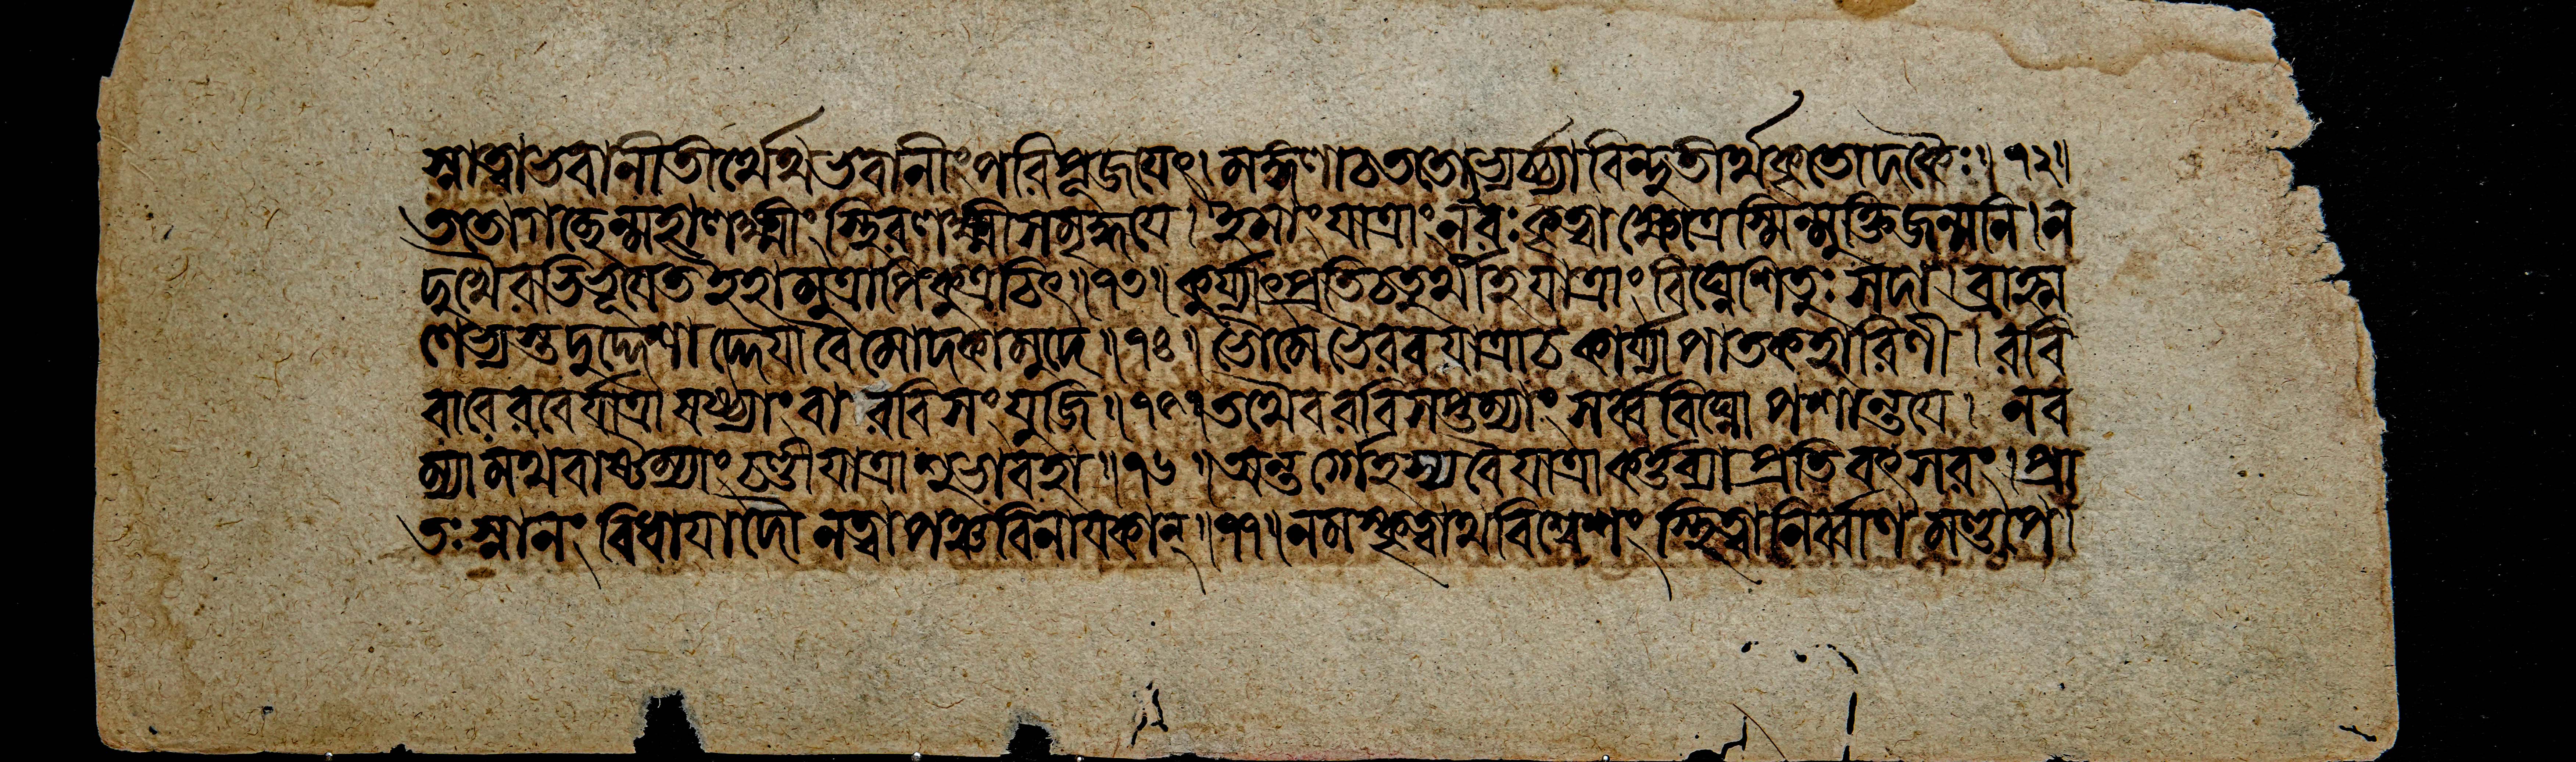 স্নাত্বাভবানীতীর্থেথভবানীংপরিপূজযেৎ। মঙ্গলাচততোভ্যর্চ্চ্যাবিন্দুতীর্থকৃতোদকৈঃ॥১২॥
ততোগচ্ছেন্মহালক্ষ্মীং স্থিরলক্ষ্মীসমৃদ্ধযে। ইমাং যাত্রাং নরঃ কৃত্বা ক্ষেত্রেস্মিন্মুক্তিজন্মনি। ন
দুখৈরভিভূযেত ইহামুত্রাপিকুত্রচিৎ॥১৩॥ কুর্য্যাৎপ্রতিচতুর্থীহযাত্রাং বিঘ্নেশিতুঃ সদা। ব্রাহ্ম
ণেভ্যস্তদুদ্দেশাদ্দেযাবৈমোদকামুদে॥১৪॥ ভৌমেভৈরবযাত্রাচ কার্য্যাপাতকহারিণী। রবি
বারেরবের্যাত্রা ষষ্ঠ্যাংবা রবিসংযুজি॥১৫॥তথৈবরবিসপ্তম্যাং সর্ব্ববিঘ্নোপশান্তযে। নব
ম্যামথবাষ্টম্যাংচণ্ডীযাত্রাশুভাবহা॥১৬॥অন্তর্গেহস্যবৈযাত্রাকর্ত্তব্যা প্রতিবৎসরং। প্রা
তঃস্নানং বিধাযাদৌ নত্বাপঞ্চবিনাযকান্॥১৭॥নমস্কৃত্বাথবিশ্বেশং স্থিত্বানির্ব্বাণমণ্ডপে।